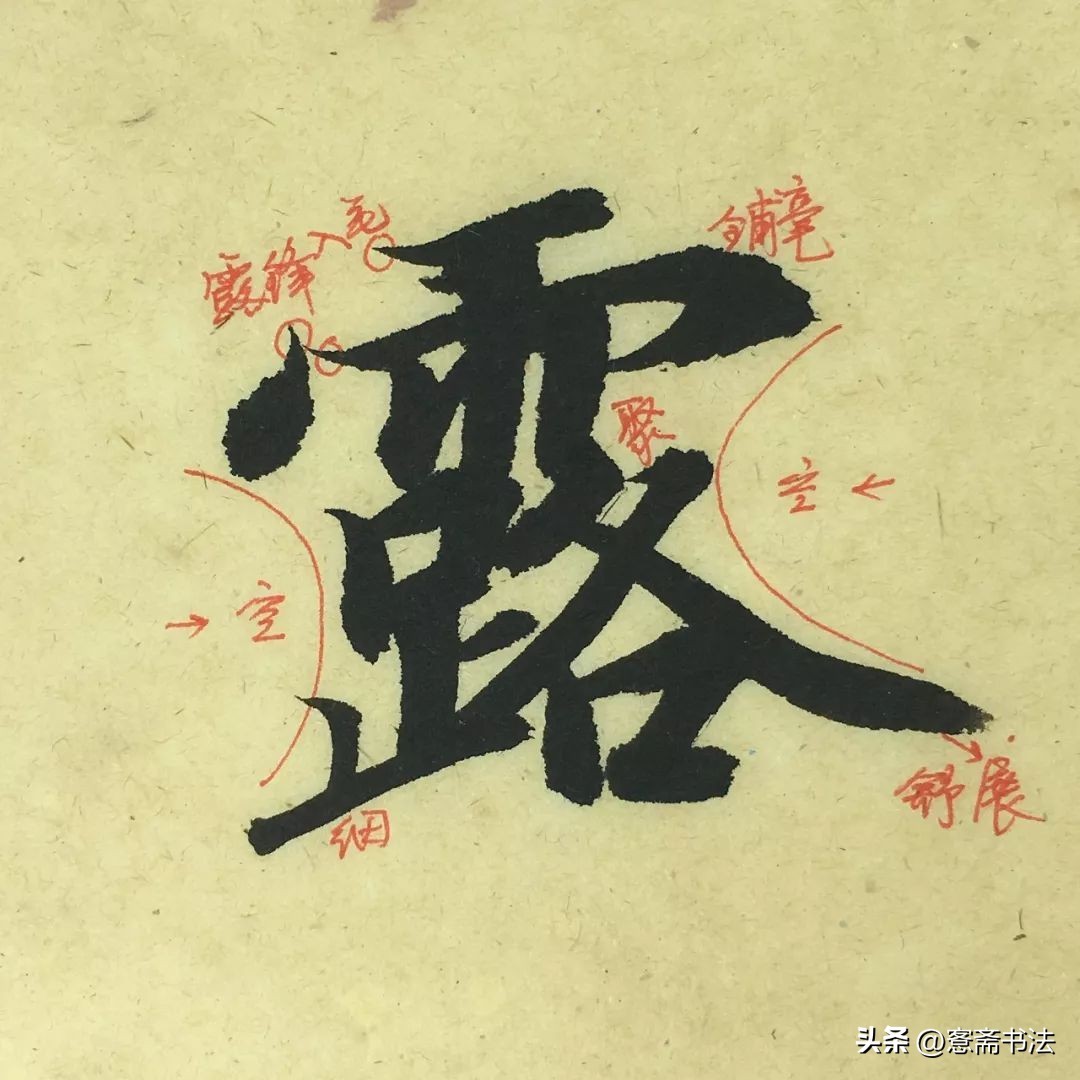 露锋入笔
铺毫
露
聚
空
空
细
舒展
头条 @窓斋书法